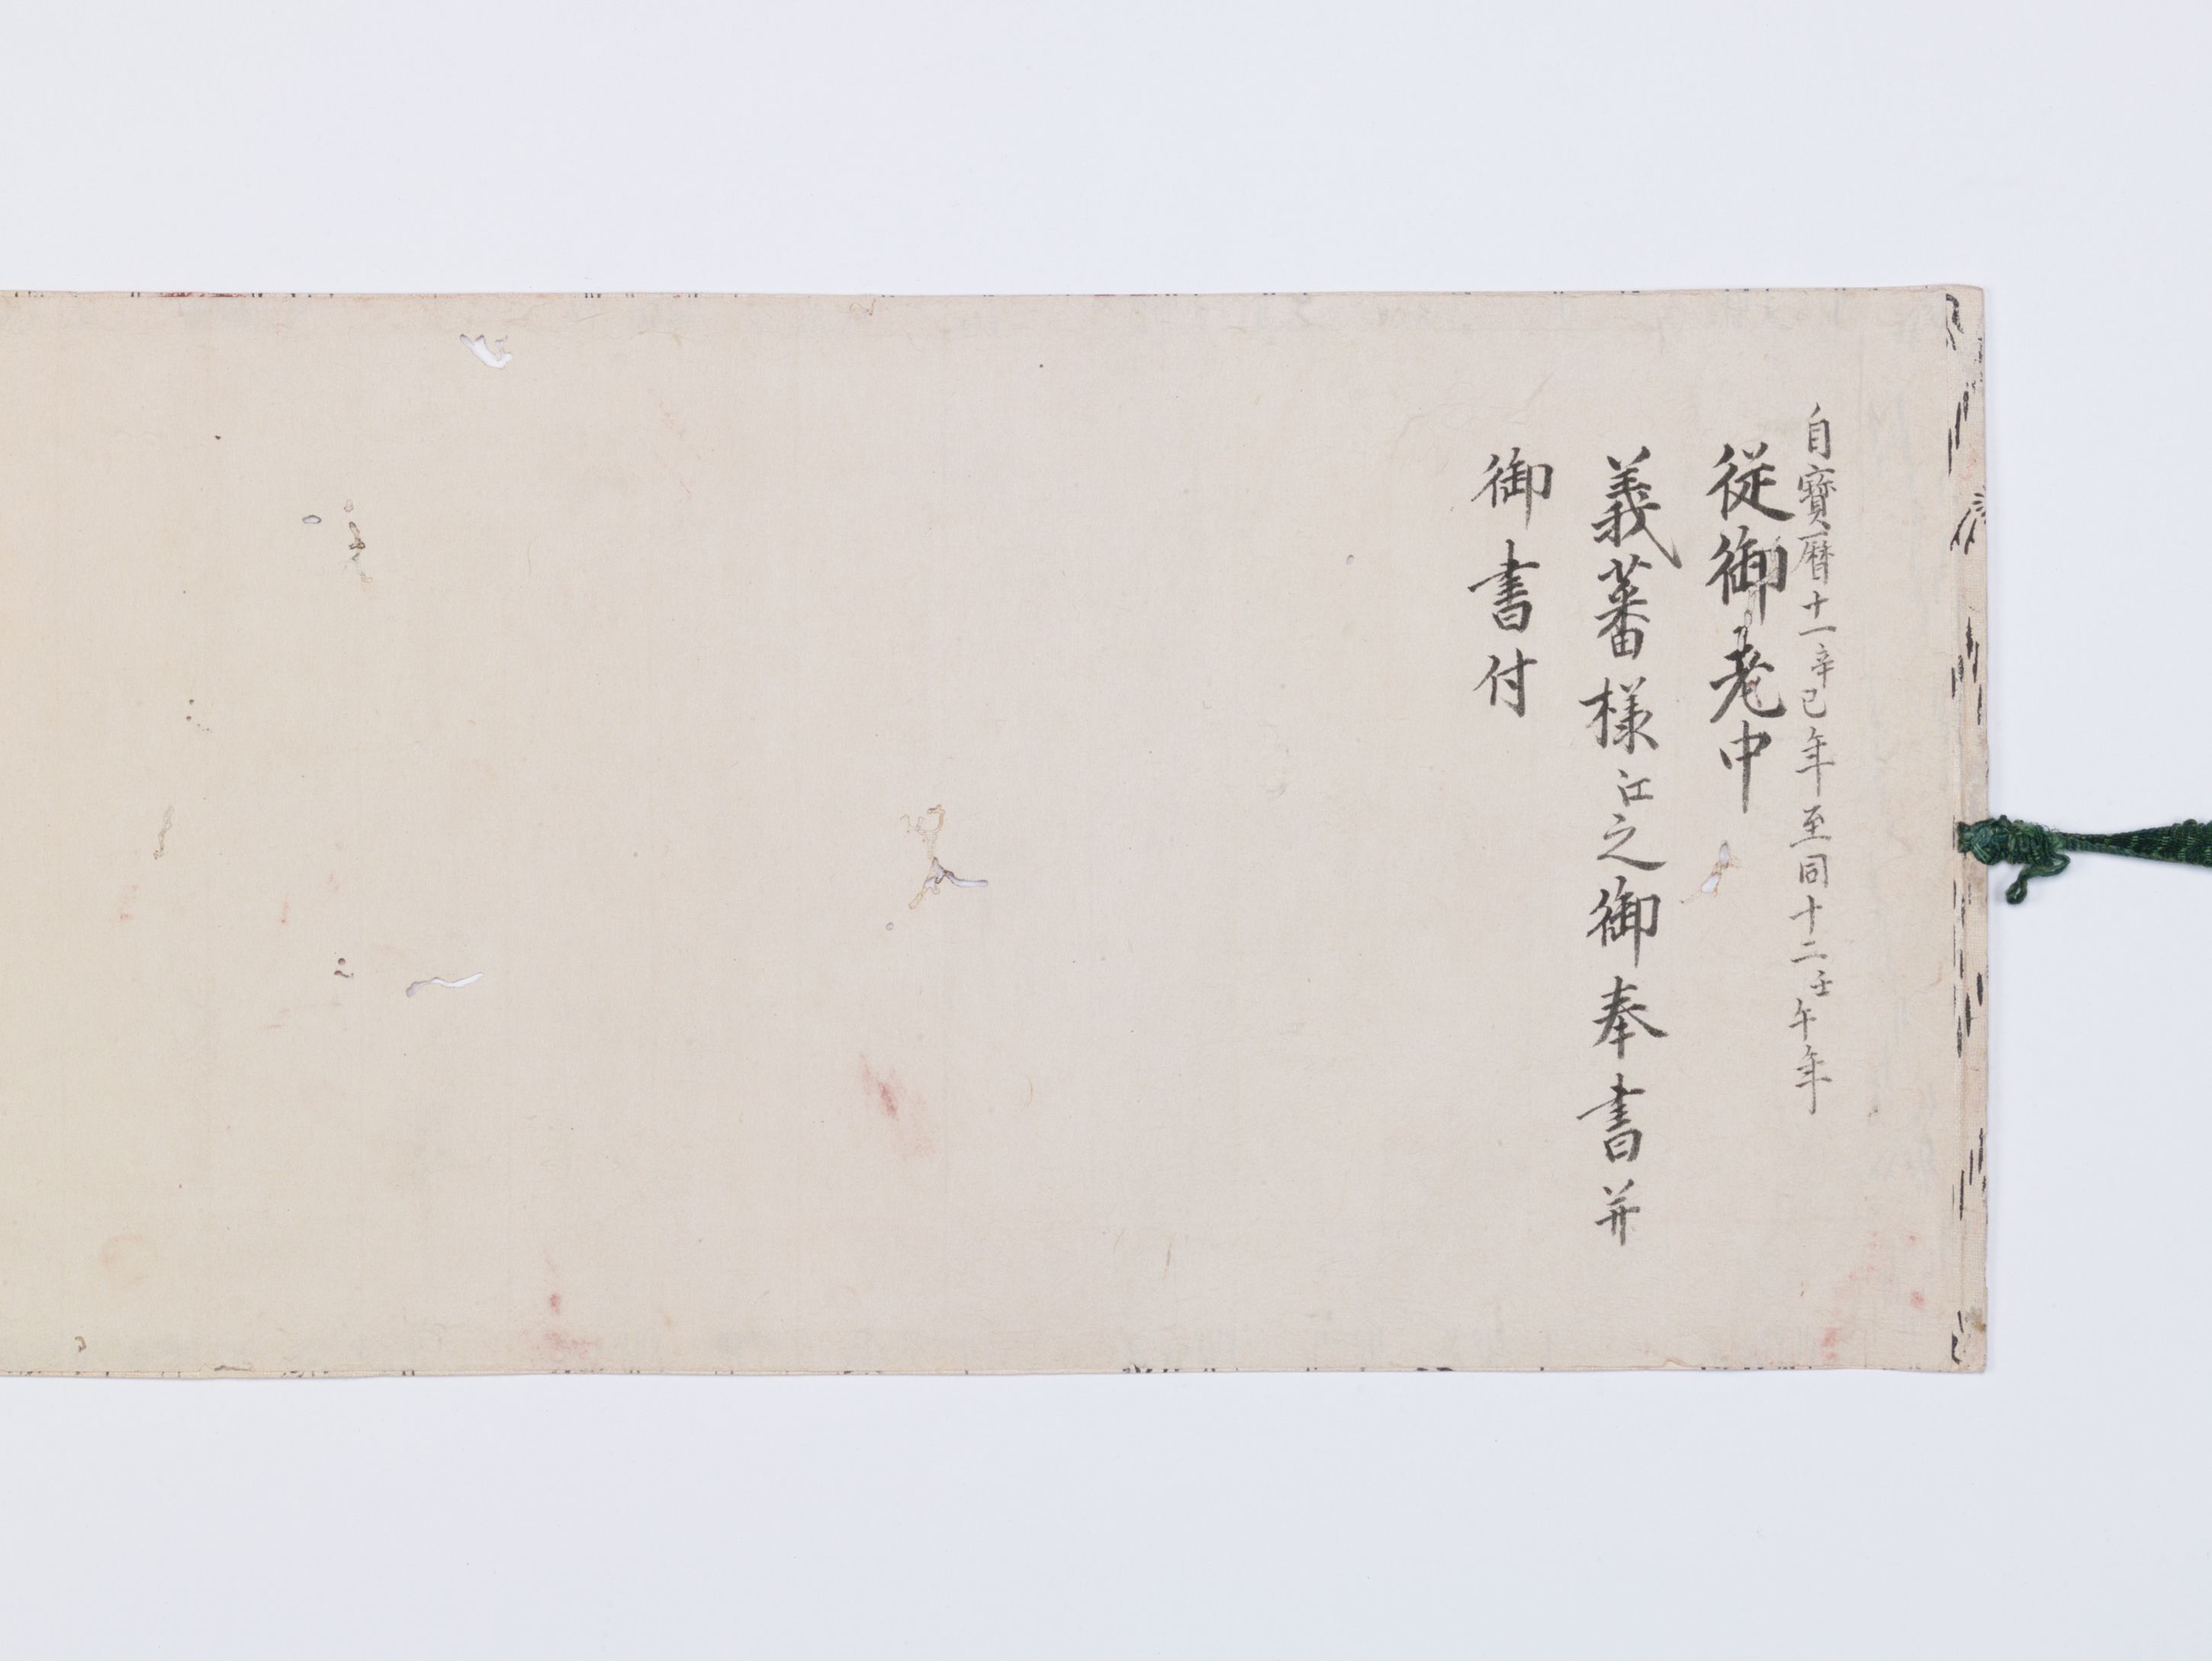 自寶暦十一辛巳年至同十二壬午年
従御老中
義蕃様江之御奉書并
御書付